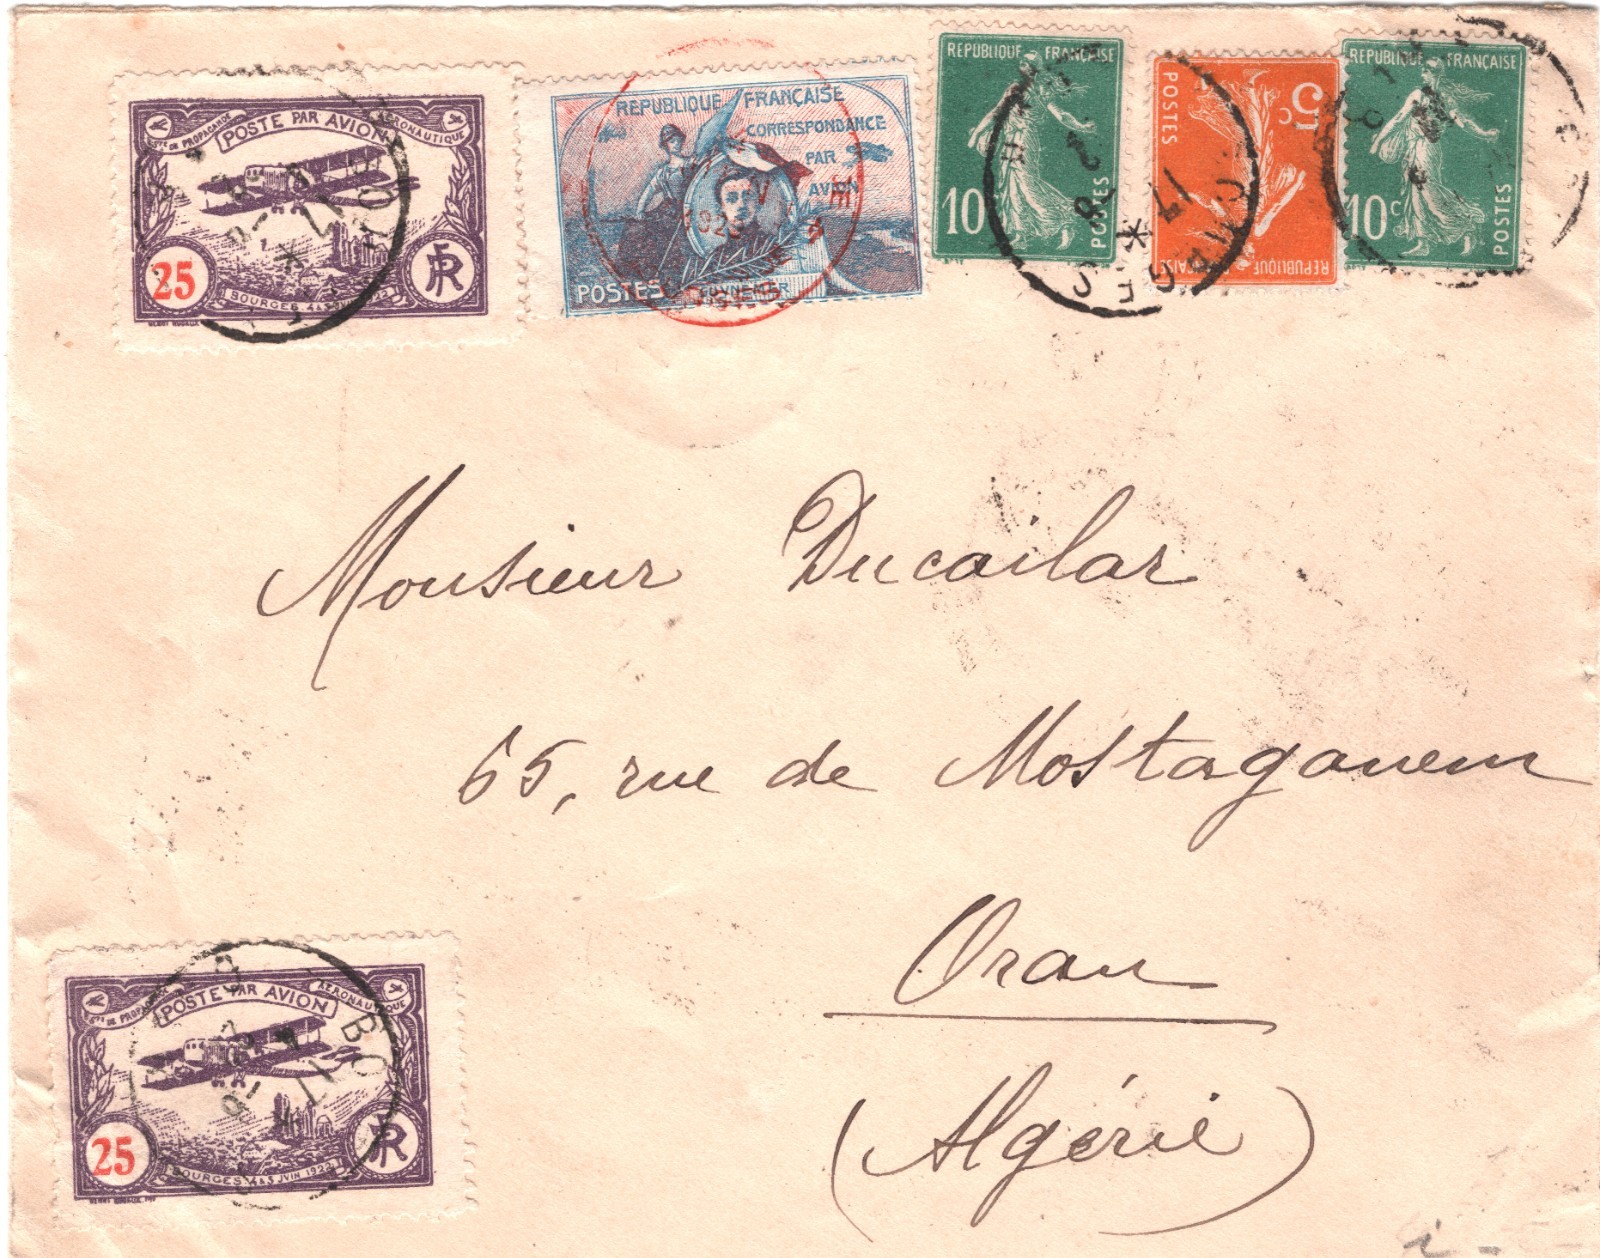 STÉ DE PROPAGANDE AÉRONAUTIQUE
POSTE PAR AVION
25
RF
BOURGES 4
RÉPUBLIQUE FRANÇAISE
CORRESPONDANCE
PAR
AVION
POSTES
RÉPUBLIQUE FRANÇAISE
10
POSTES
5c
POSTES
RÉPUBLIQUE
RÉPUBLIQUE FRANÇAISE
10c
POSTES
Monsieur Ducailar
65, rue de Mostaganem
Oran
(Algérie)
STÉ DE PROPAGANDE AÉRONAUTIQUE
POSTE PAR AVION
25
RF
BOURGES 4 & 5 JUIN 1922